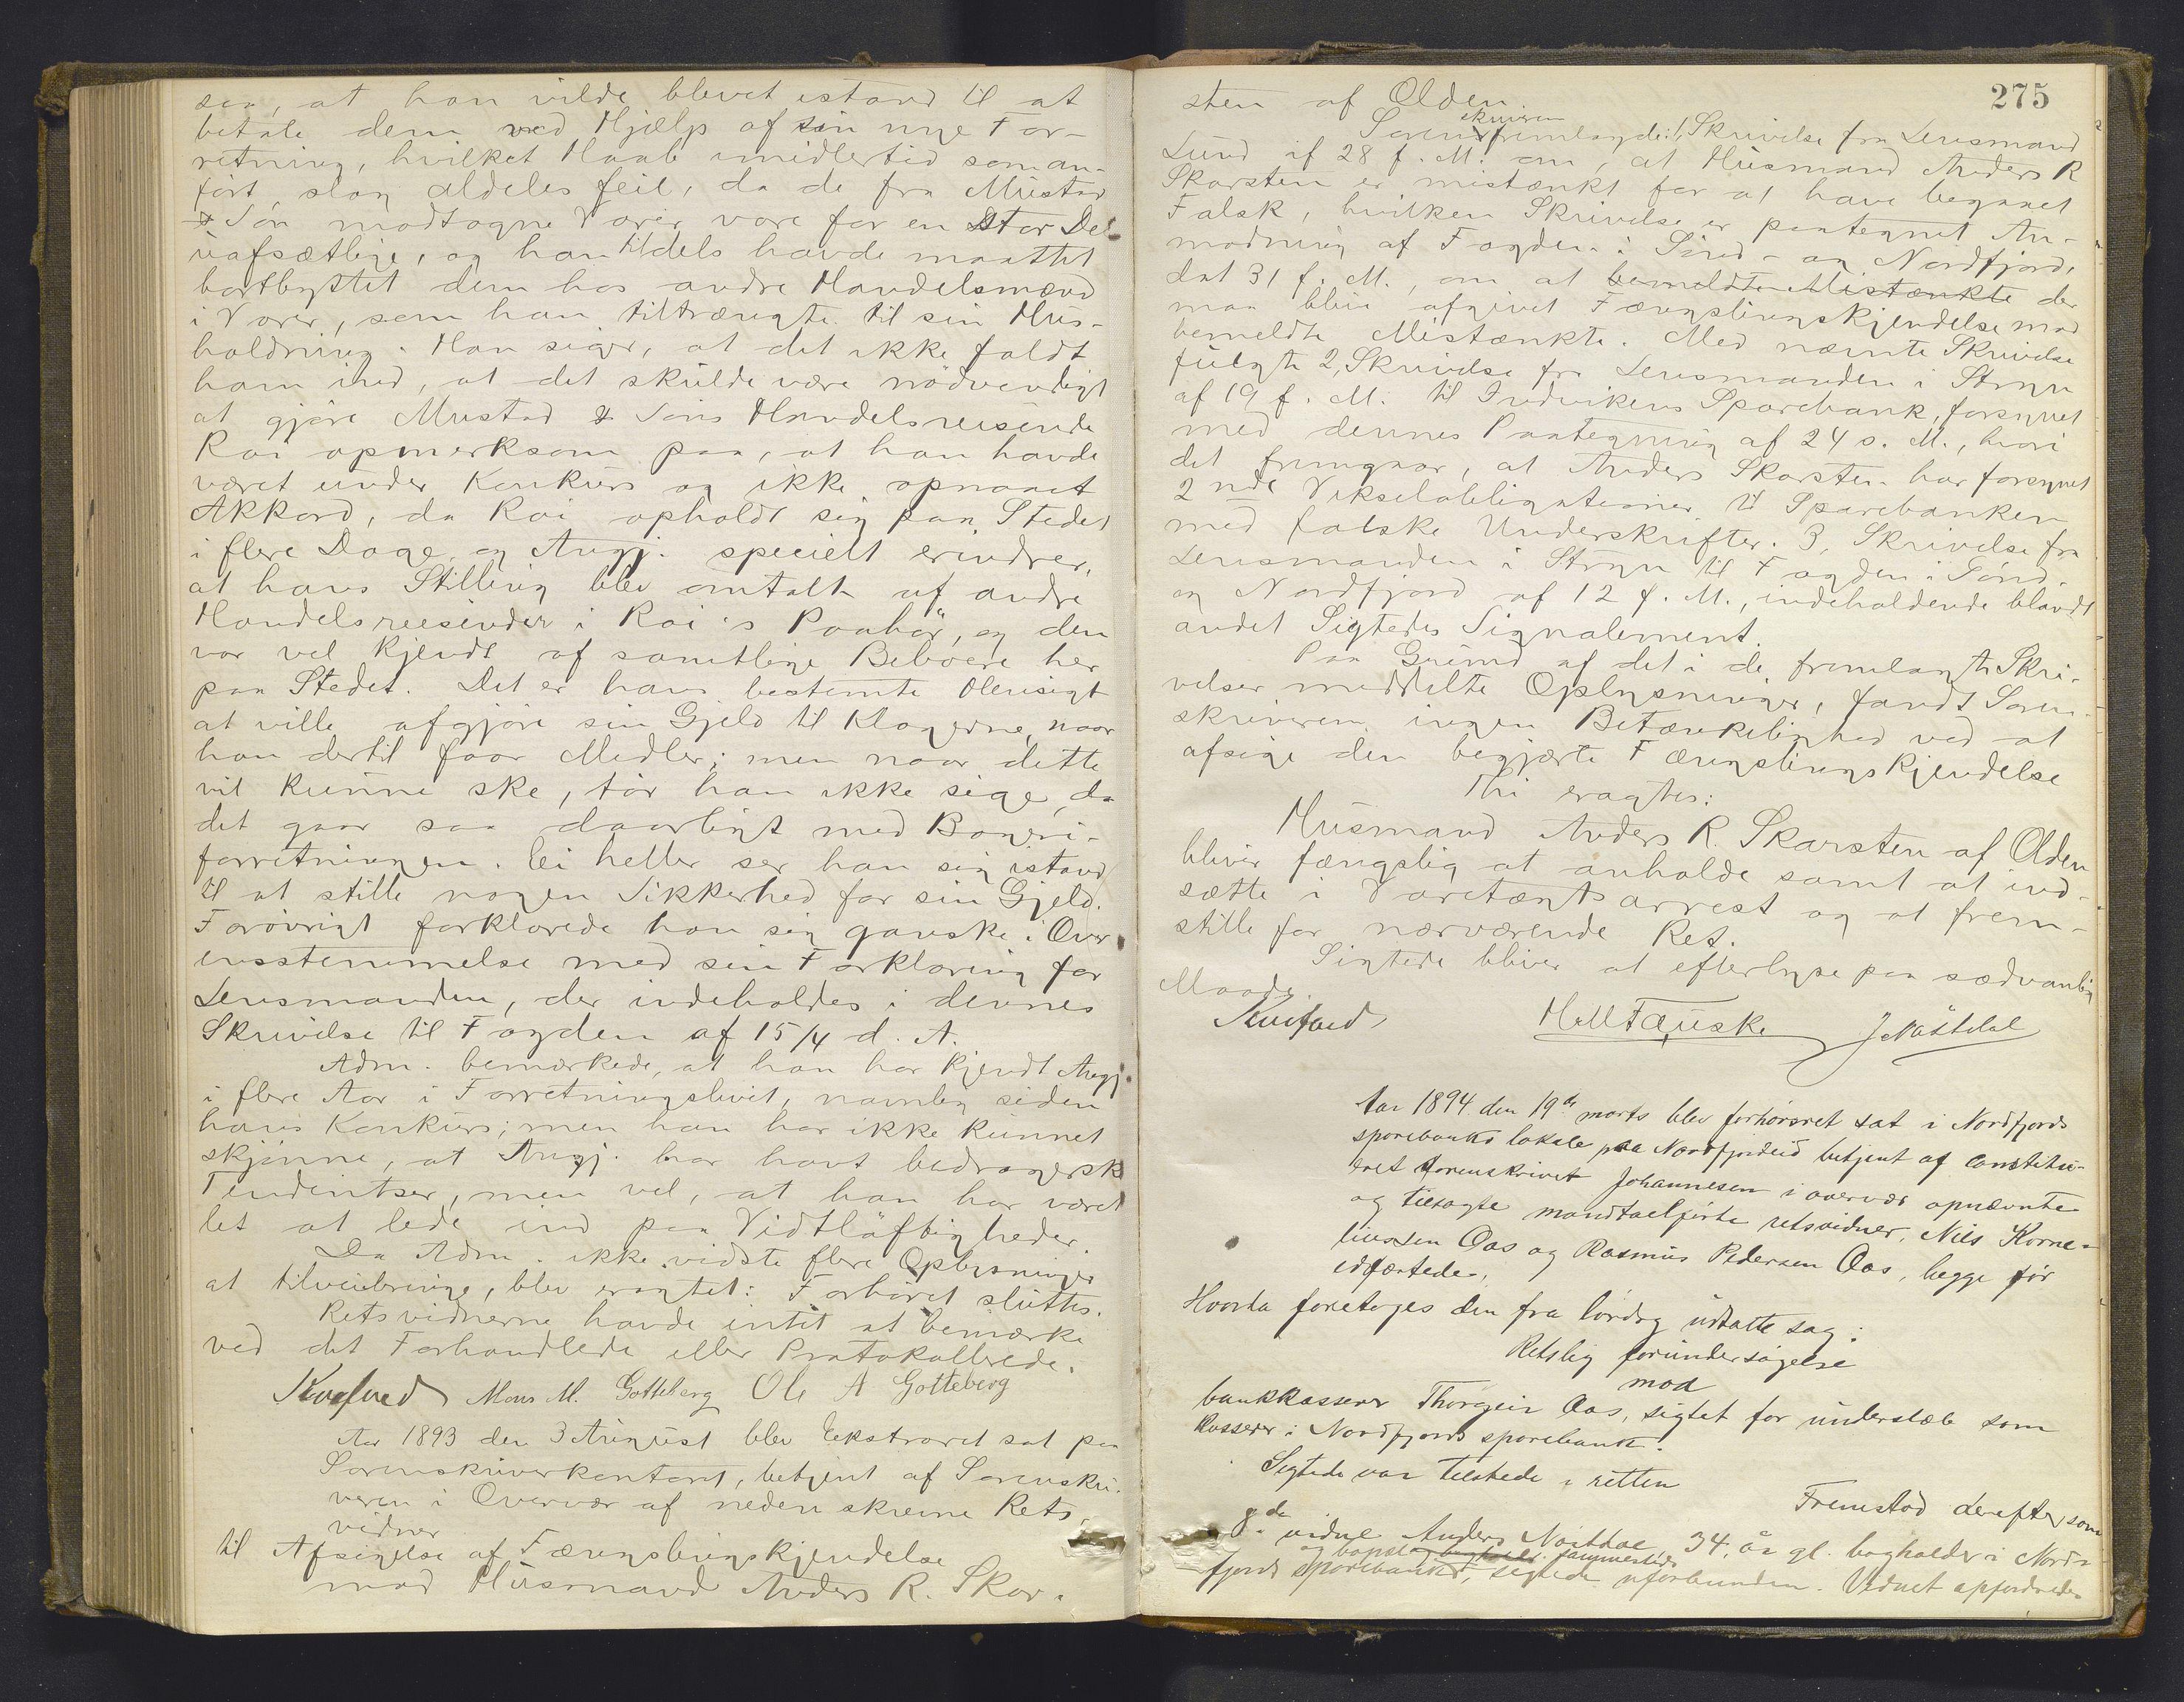 saa, at han vilde blevet istand til at
betale dem ved Hjælp af sin nye For-
retning, hvilket Haab imidlertid som an-
ført slog aldeles feil, da de fra Mustad
& Søn modtagne Varer vare for en stor Del
uafsættlige, og han tildels havde maattet
bortbyttet dem hos andre Handelsmænd
i Varer, som han tiltrængte til sin Hus-
holdning. Han siger, at det ikke faldt
ham ind, at det skulde være nødvendigt
at gjøre Mustad & Søns Handelsreisende
Roi opmerksom paa, at han havde
været under Konkurs og ikke opnaaet
Akkord, da Roi opholdt sig paa Stedet
i flere Dage, og Angj. specielt erindrer,
at hans Stilling blev omtalt af andre
Handelsreisender i Roi's Paahør, og den
var vel kjendt af samtlige Beboere her
paa Stedet. Det er hans bestemte Hensigt
at ville afgjøre sin Gjeld til Klagerne, naar
han dertil faar Midler; men naar dette
vil kunne ske, tør han ikke sige, da
det gaar saa daarligt med Bageri-
forretningen. Ei heller ser han sig istand
til at stille nogen Sikkerhed for sin Gjeld.
Forøvrigt forklarede han sig ganske i Over
ensstemmelse med sin Forklaring for
Lensmanden, der indeholdes i dennes
Skrivelse til Fogden af 15/4 d. A.
Adm. bemærkede, at han har kjendt Angj.
i flere Aar i Forretningslivet, navnlig siden
hans Konkurs; men han har ikke kunnet
skjønne, at Angj. har havt bedragersk
Tendentser, men vel, at han har været
let at lede ind paa Vidtløftigheder.
Da Adm. ikke vidste flere Oplysninger
at tilveiebringe, blev eragtet: Forhøret sluttes.
Retsvidnerne havde intet at bemærke
ved det Forhandlede eller Protokollerede.
Mons M. Gotteberg Ole A Gotteberg
Aar 1893 den 3 August blev Ekstraret sat paa
Sorenskriverkontoret, betjent af Sorenskri-
veren i Overvær af nedenskrevne Rets-
vidner
til Afsigelse af Fængslingskjendelse
mod Husmand Anders R. Skar-
275
sten af Olden.
Sorenskriveren fremlagde: 1, Skrivelse fra Lensmand
Lund af 28 f. M. om, at Husmand Anders R
Skarsten er mistænkt for at have begaaet
Falsk, hvilken Skrivelse er paategnet An-
modning af Fogden i Sønd- og Nordfjord,
dat 31 f. M., om at bemeldte Mistænkte der
maa blive afgivet Fængslingskjendelse mod
bemeldte Mistænkte. Med nævnte Skrivelse
fulgte 2, Skrivelse fra Lensmanden i Stryn
af 19 f. M. til Indvikens Sparebank, forsynet
med dennes Paategning af 24 s. M., hvori
det fremgaar, at Anders Skarsten har forsynet
2nde Vekselobligationer til Sparebanken
med falske Underskrifter. 3, Skrivelse fra
Lensmanden i Stryn til Fogden i Sønd-
og Nordfjord af 12 f. M., indeholdende blandt
andet Sigtedes Signalement.
Paa Grund af det i de fremlagte Skri-
velser meddelte Oplysninger, fandt Soren-
skriveren ingen Betænkelighed ved at
afsige den begjærte Fængslingskjendelse
Thi eragtes:
Husmand Anders R. Skarsten af Olden
bliver fængslig at anholde samt at ind-
sætte i Varetægtsarrest og at frem-
stille for nærværende Ret.
Sigtede bliver at efterlyse paa sædvanlig
Maade.
H M Fauske J Nøstdal
Aar 1894 den 19de marts blev forhørsret sat i Nordfjords
sparebanks lokale paa Nordfjordeid betjent af constitu-
eret sorenskriver Johannesen i overvær opnævnte
og tilsagte mandtalførte retsvidner, Nils Korne-
liussen Aas og Rasmus Pedersen Aas, begge før
edfæstede.
Hvorda foretoges den fra lørdag udsatte sag:
Retslig forundersøgelse
mod
bankkasserer Thorgeir Aas, sigtet for underslæb som
kasserer i Nordfjords sparebank.
Sigtede var tilstede i retten
Fremstod derefter som
8de vidne Anders Nøstdal, 34 år gl. bogholder i Nord-
og bopæl sammesteds
fjords sparebank, sigtede uforbunden. Vidnet opfordredes